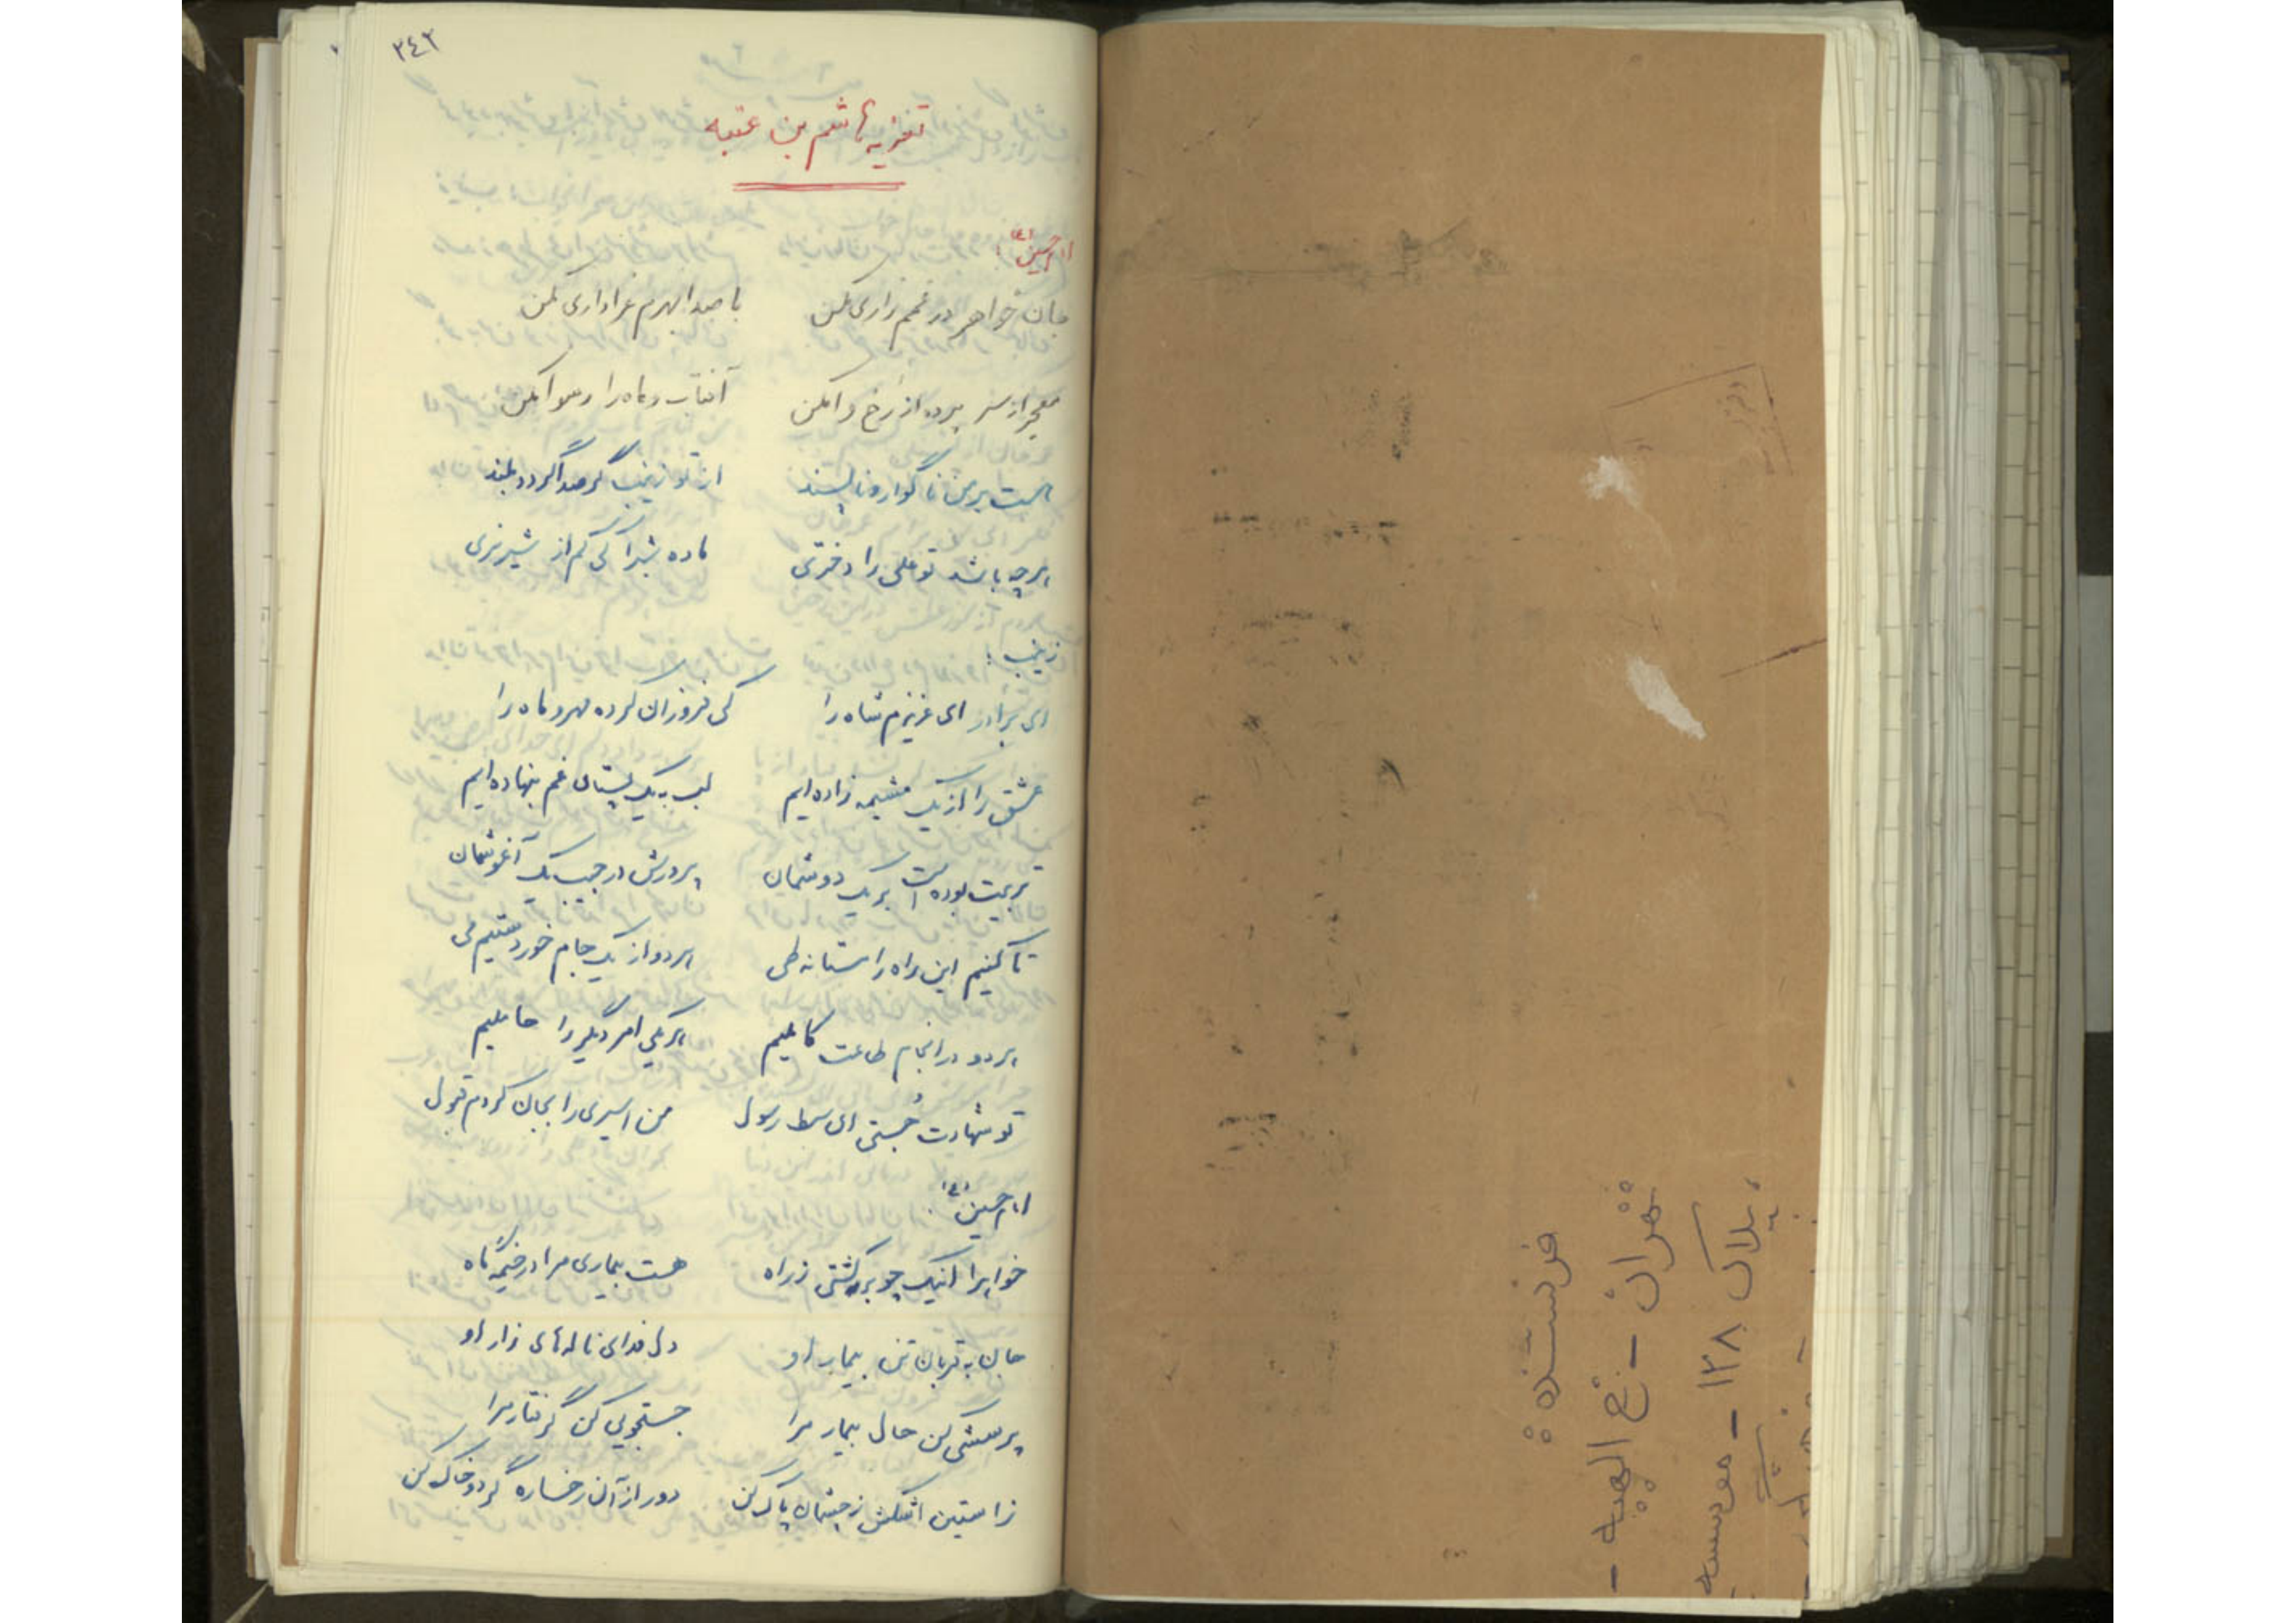 ۲۴۲
تعزیه هاشم بن عتبه
امام حسین (ع)
جان خواهر در غمم زاری مکن با صدا بهرم عزاداری مکن
معجر از سر پرده از رخ وا مکن آفتاب و ماه را رسوا مکن
هست بر من ناگوار و ناپسند از تو زینب گر صدا گردد بلند
هر چه باشد تو علی را دختری ماده شیرا کی کم از شیر نری
زینب:
ای برادر ای عزیزم شاه را کی فروزان کرده مهر و ماه را
عشق را از یک مشیمه زاده ایم لب به یک پستان غم بنهاده ایم
تربیت بوده است بر یک دوشمان پرورش در جیب یک آغوشمان
تا کنیم این راه را مستانه طی هر دو از یک جام خوردستیم می
هر دو در انجام طاعت کاملیم هر یکی امر دگر را حاملیم
تو شهادت جستی ای سبط رسول من اسیری را بجان کردم قبول
امام حسین (ع)
خواهرا اینک چو برگشتی ز راه هست بیماری مرا در خیمه گاه
جان به قربان تن بیمار او دل فدای ناله های زار او
پرسشی کن حال بیمار مرا جستجویی کن گرفتار مرا
ز استین اشکش ز چشمان پاک کن دور از آن رخساره گرد و خاک کن
فرستنده:
تهران -
پلاک ۱۲۸ - موسسه